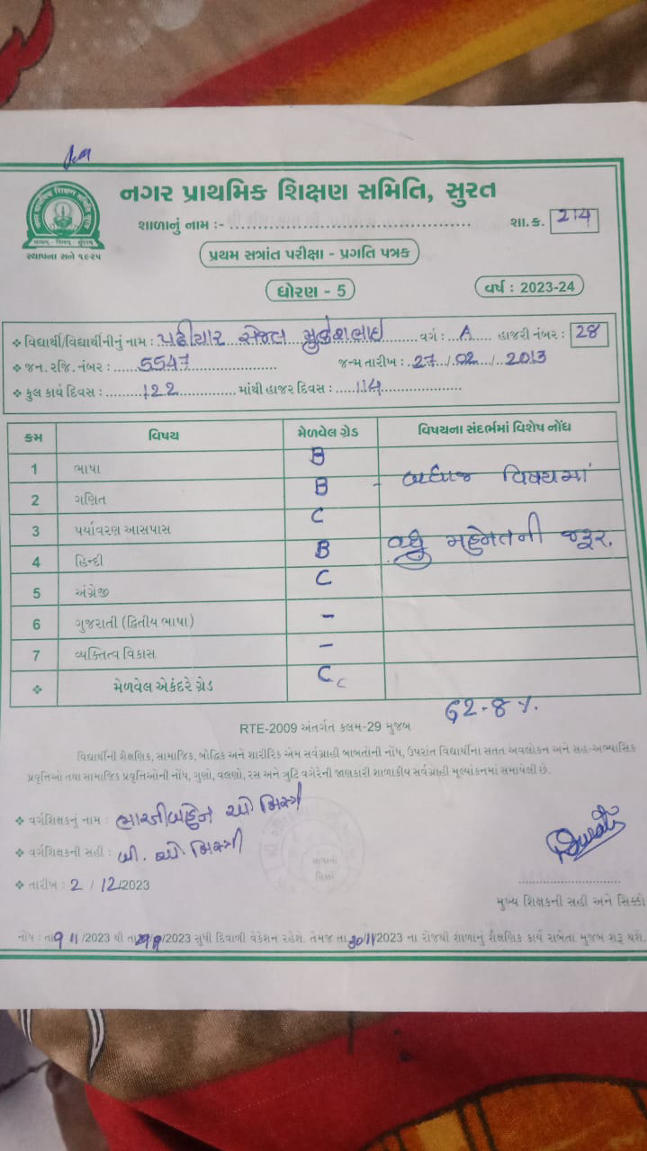 નગર પ્રાથમિક શિક્ષણ સમિતિ, સુરત
શાળાનું નામ :- ........................................ શા.ક. 214
સ્થાપના સને ૧૯૨૫
પ્રથમ સત્રાંત પરીક્ષા - પ્રગતિ પત્રક
ધોરણ - 5
વર્ષ : 2023-24
❖ વિદ્યાર્થી/વિદ્યાર્થીનીનું નામ : પઢીયાર સેજલ મુકેશભાઇ વર્ગ : A હાજરી નંબર : 28
❖ જન. રજિ. નંબર : 5547 જન્મ તારીખ : 27/02/2013
❖ કુલ કાર્ય દિવસ : 122 માંથી હાજર દિવસ : 114
ક્રમ વિષય મેળવેલ ગ્રેડ વિષયના સંદર્ભમાં વિશેષ નોંધ
1 ભાષા B
2 ગણિત B - બધાજ વિષયમાં
3 પર્યાવરણ આસપાસ C
4 હિન્દી B વધુ મહેનતની જરૂર.
5 અંગ્રેજી C
6 ગુજરાતી (દ્વિતીય ભાષા) -
7 વ્યક્તિત્વ વિકાસ -
❖ મેળવેલ એકંદરે ગ્રેડ C c
62.8 %.
RTE-2009 અંતર્ગત કલમ-29 મુજબ
વિદ્યાર્થીની શૈક્ષણિક, સામાજિક, બૌદ્ધિક અને શારીરિક એમ સર્વગ્રાહી બાબતોની નોંધ, ઉપરાંત વિદ્યાર્થીના સતત અવલોકન અને સહ-અભ્યાસિક
પ્રવૃત્તિઓ તથા સામાજિક પ્રવૃત્તિઓની નોંધ, ગુણો, વલણો, રસ અને ત્રુટિ વગેરેની જાણકારી શાળાકીય સર્વગ્રાહી મૂલ્યાંકનમાં સમાયેલી છે.
❖ વર્ગશિક્ષકનું નામ : ભારતીબહેન એ મિસ્ત્રી
❖ વર્ગશિક્ષકની સહી : બી. એ મિસ્ત્રી
❖ તારીખ : 2/12/2023
મુખ્ય શિક્ષકની સહી અને સિક્કો
નોંધ : તા. 9/11/2023 થી તા. 29/11/2023 સુધી દિવાળી વેકેશન રહેશે. તેમજ તા. 30/11/2023 ના રોજથી શાળાનું શૈક્ષણિક કાર્ય રાબેતા મુજબ શરૂ થશે.